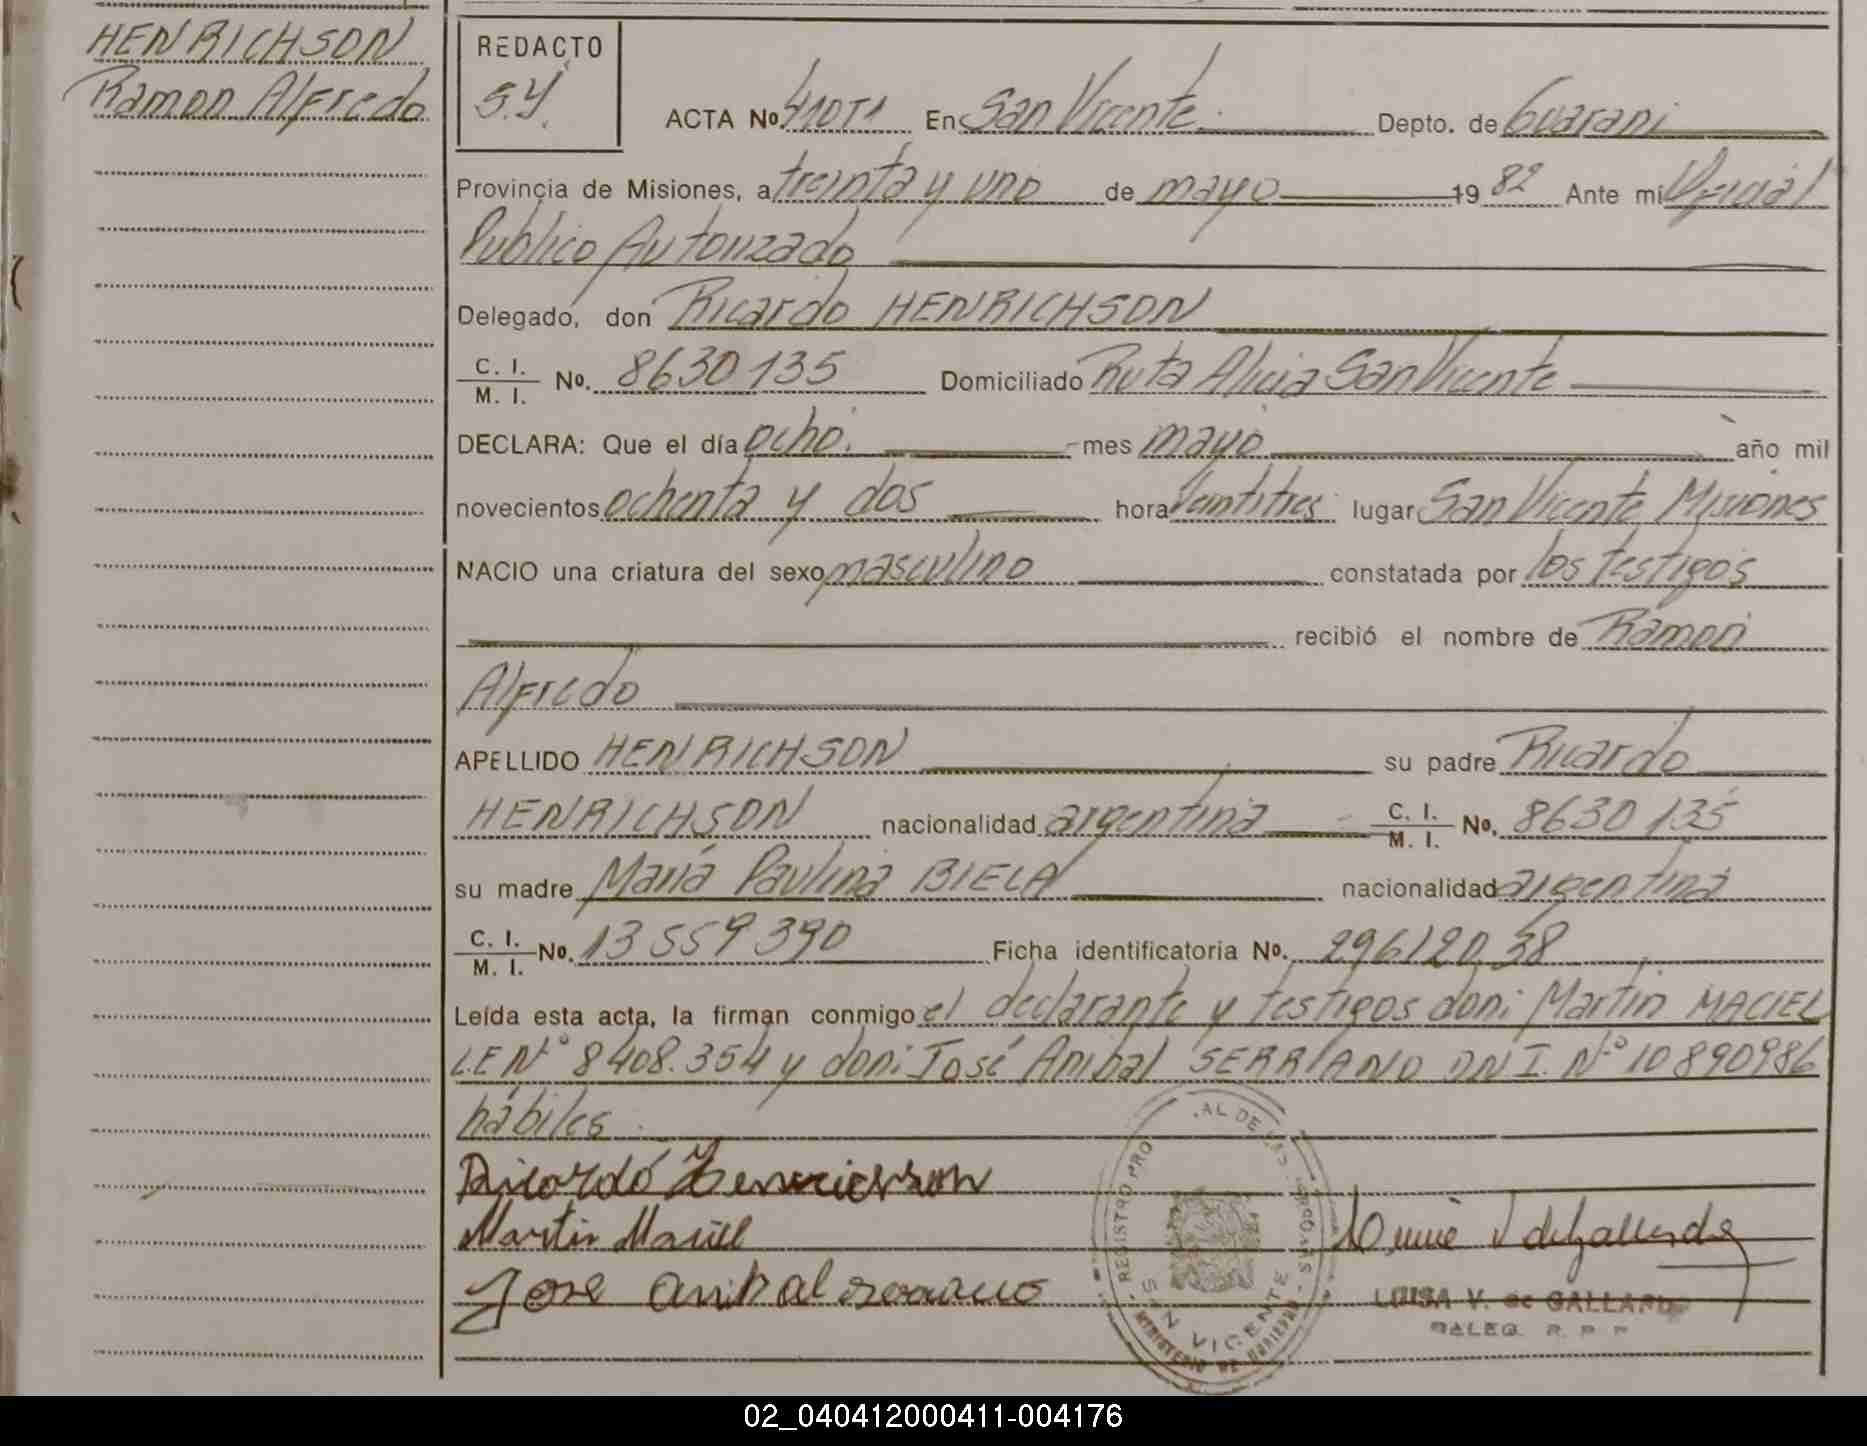 HENRICHSON
Ramon Alfredo
REDACTO
S.Y.
ACTA No. 410T1 En San Vicente Depto. de Guarani
Provincia de Misiones, a treinta y uno de mayo 1982 Ante mí Oficial
Publico Autorizado
Delegado, don Ricardo HENRICHSON
C. I. / M. I. No. 8630135 Domiciliado Ruta Alicia San Vicente
DECLARA: Que el día ocho. mes mayo año mil
novecientos ochenta y dos hora veintitres lugar San Vicente Misiones
NACIO una criatura del sexo masculino constatada por los testigos
recibió el nombre de Ramon
Alfredo
APELLIDO HENRICHSON su padre Ricardo
HENRICHSON nacionalidad argentina C. I. / M. I. No. 8630135
su madre María Paulina BIELA nacionalidad argentina
C. I. / M. I. No. 13559390 Ficha identificatoria No. 29612038
Leída esta acta, la firman conmigo el declarante y testigos don: Martin MACIEL
L.E Nº 8408.354 y don: José Anibal SERRIANO DN I. Nº 10890986
hábiles
Ricardo Henrichson
Martin Maciel
Jose Anibal
REGISTRO PRO AL DE LAS PERSONAS
SAN VICENTE
MINISTERIO DE GOBIERNO
LUISA V. de GALLARDO
DALEG. R. P. P.
02_040412000411-004176